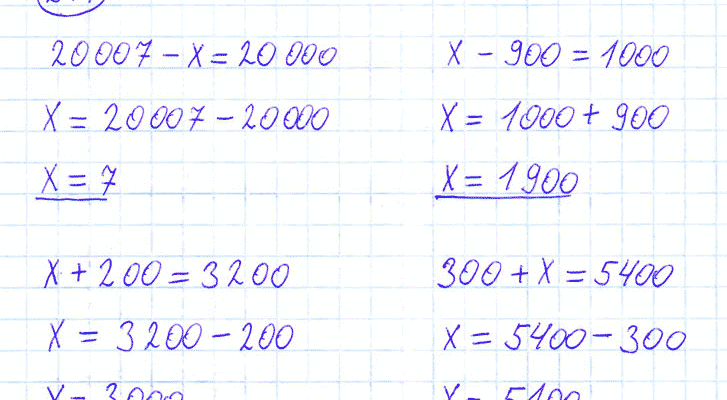 20007 - x = 20 000
x = 20007 - 20000
x = 7
x - 900 = 1000
x = 1000 + 900
x = 1900
x + 200 = 3200
x = 3200 - 200
x = 3000
300 + x = 5400
x = 5400 - 300
x = 5100